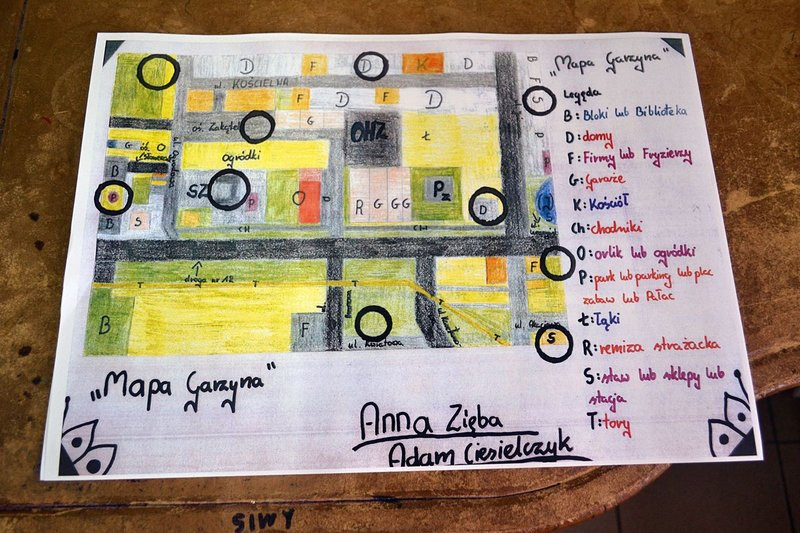 D F D K D
ul. KOŚCIELNA
B
F
S
F D F D
G
OHZ
Ł
OGRÓDKI
B
SZ
P
O
R G G G
Pz
D
B S
CH
CH
F
droga nr 12
T T T T
B
F
ul. Kwiatowa
S
„Mapa Garzyna"
Legęda
B: Bloki lub Biblioteka
D: domy
F: Firmy lub Fryzierzy
G: Garaże
K: Kościół
CH: chodniki
O: orlik lub ogródki
P: park lub parking lub plac
zabaw lub Pałac
Ł: Łąki
R: remiza strażacka
S: staw lub sklepy lub
stacja
T: tory
„Mapa Garzyna"
Anna Zięba
Adam Ciesielczyk
SIWY